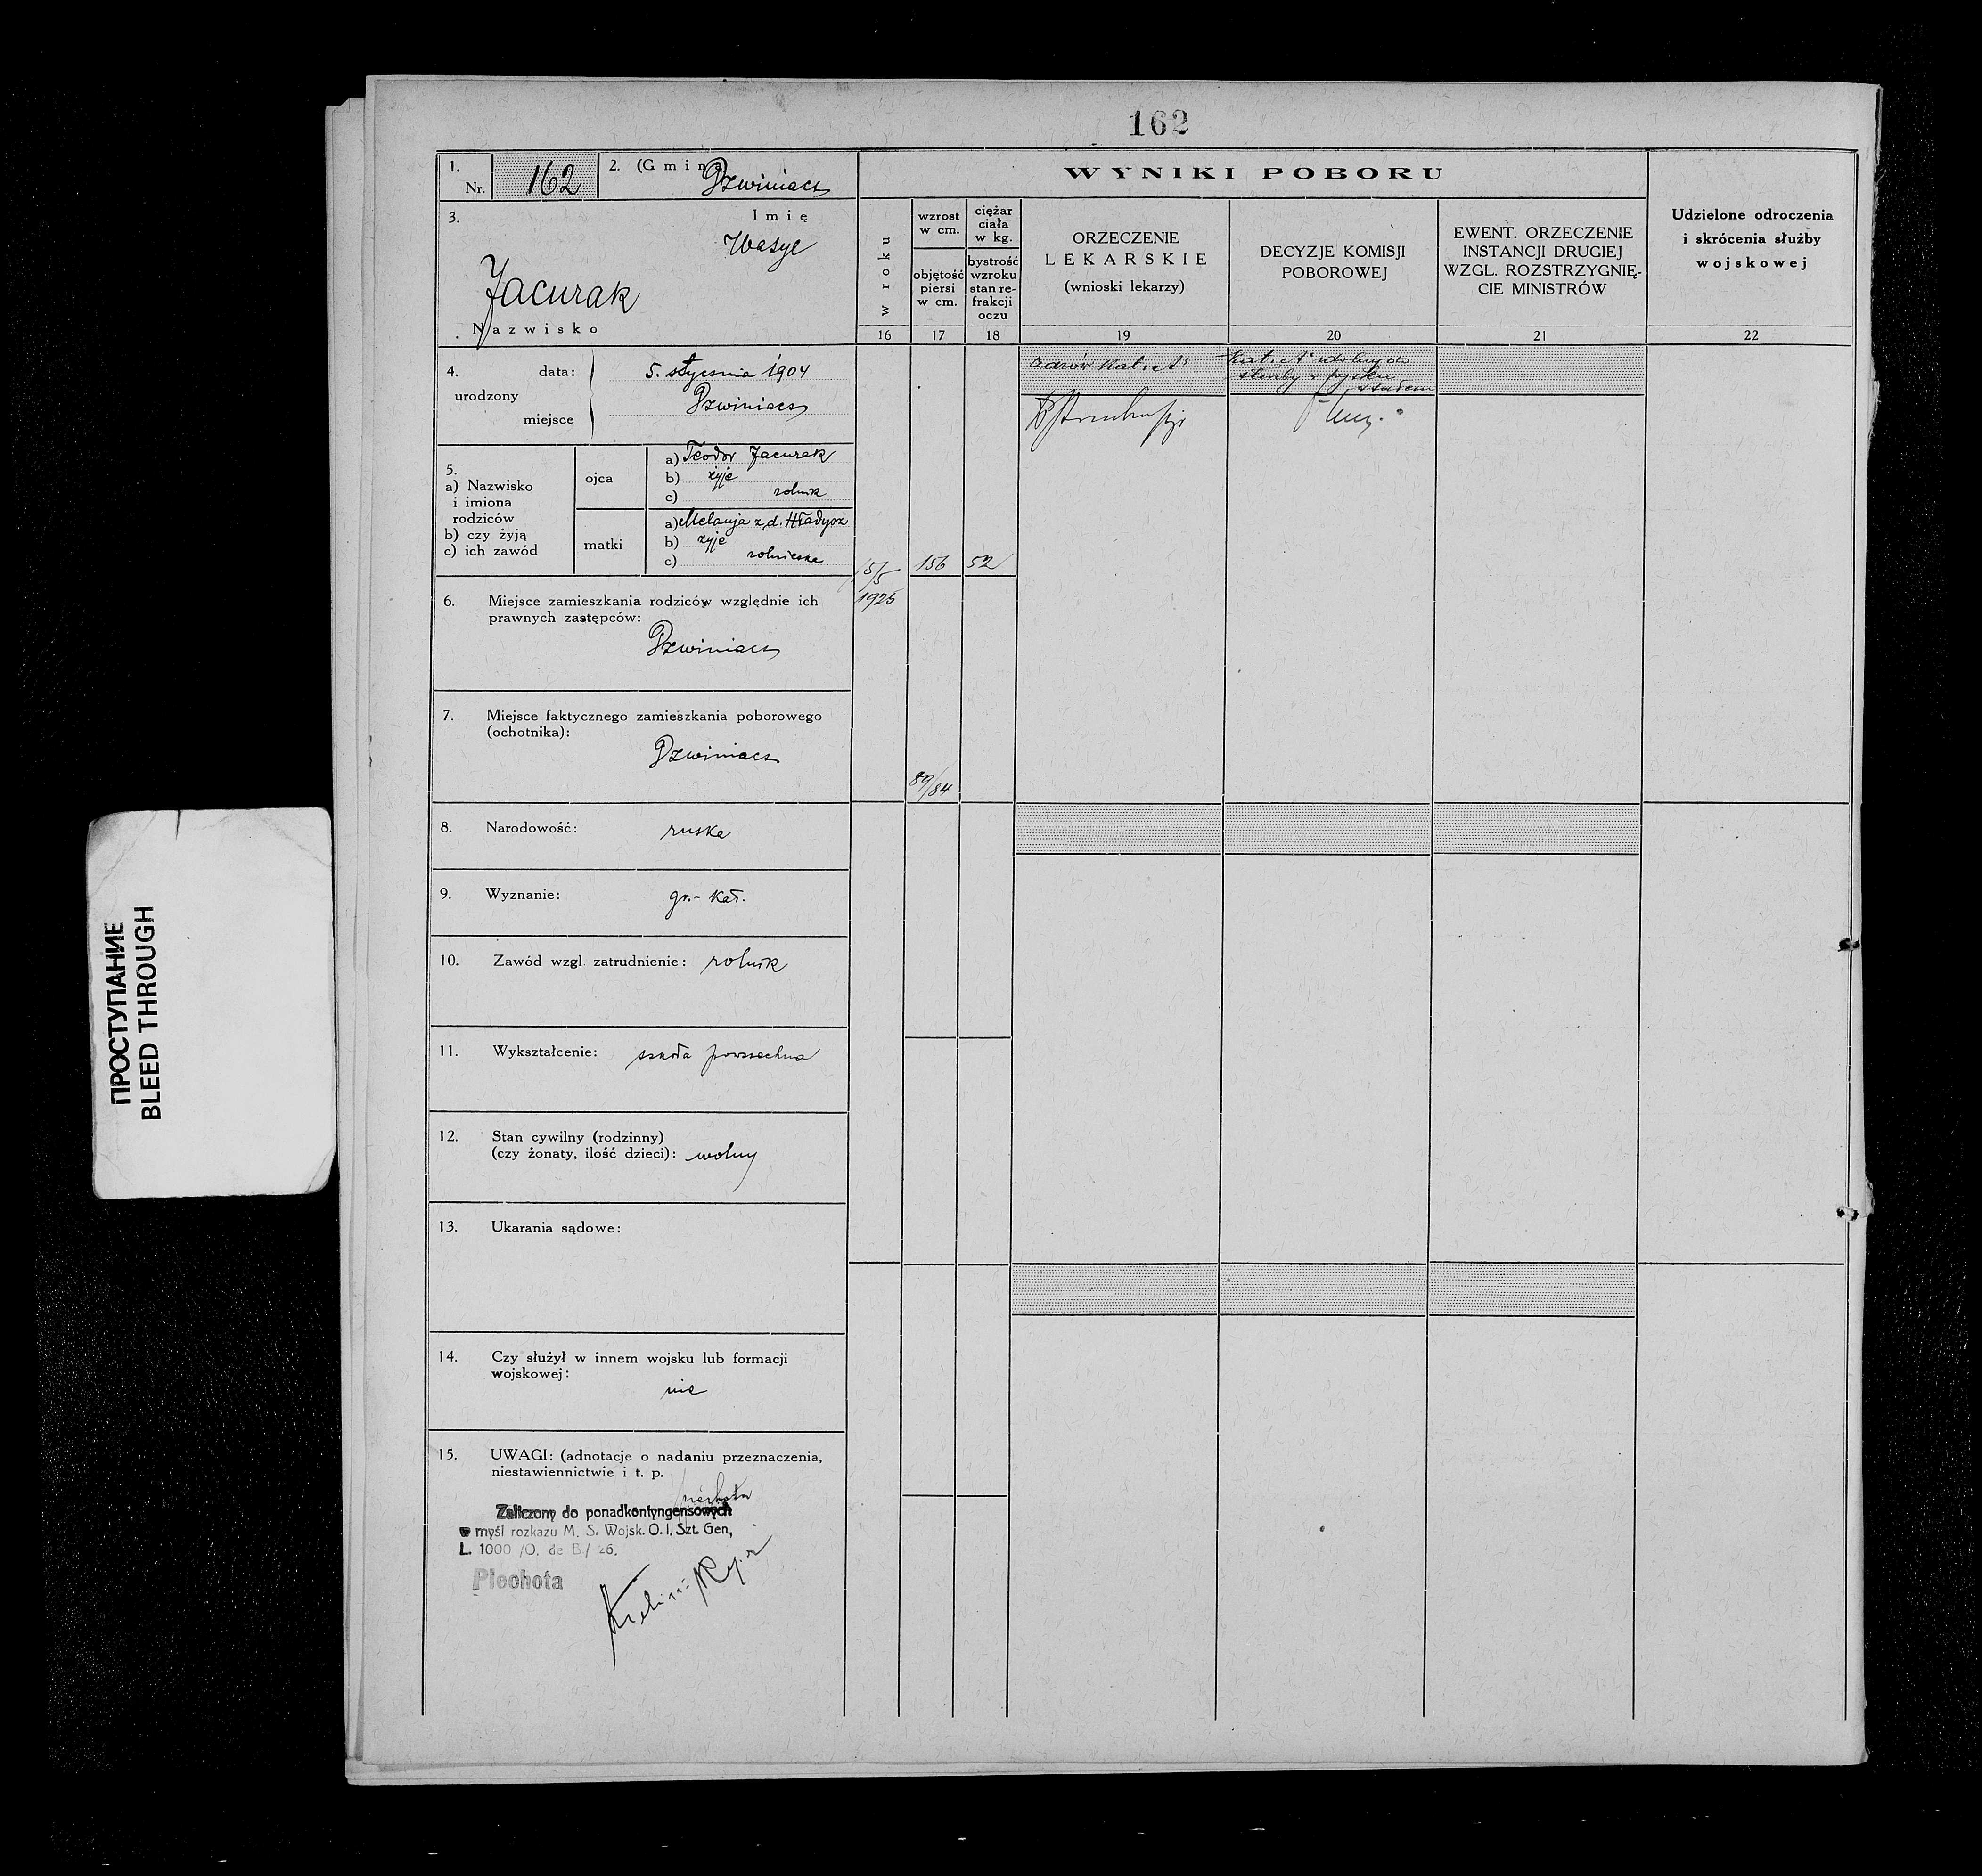 162
1.
Nr. 162
2. (Gmina Dzwiniacz
3.
Imię
Wasyl
Jacurak
Nazwisko
4.
urodzony
data: 5. stycznia 1904
miejsce Dzwiniacz
5.
a) Nazwisko
i imiona
rodziców
b) czy żyją
c) ich zawód
ojca
a) Teodor Jacurak
b) żyje
c) rolnik
matki
a) Melanja z d. Hładysz
b) żyje
c) rolniczka
6. Miejsce zamieszkania rodziców względnie ich
prawnych zastępców:
Dzwiniacz
7. Miejsce faktycznego zamieszkania poborowego
(ochotnika):
Dzwiniacz
8. Narodowość: ruska
9. Wyznanie: gr.-kat.
10. Zawód wzgl. zatrudnienie: rolnik
11. Wykształcenie: szkoła powszechna
12. Stan cywilny (rodzinny)
(czy żonaty, ilość dzieci): wolny
13. Ukarania sądowe:
14. Czy służył w innem wojsku lub formacji
wojskowej:
nie
15. UWAGI: (adnotacje o nadaniu przeznaczenia,
niestawiennictwie i t. p.
piechota
Zaliczony do ponadkontyngensowych
w myśl rozkazu M. S. Wojsk. O. I. Szt. Gen,
L. 1000 /O. de B./ 26.
Piechota
WYNIKI POBORU
w roku
16
wzrost
w cm.
objętość
piersi
w cm.
17
ciężar
ciała
w kg.
bystrość
wzroku
stan re-
frakcji
oczu
18
ORZECZENIE
LEKARSKIE
(wnioski lekarzy)
19
DECYZJE KOMISJI
POBOROWEJ
20
EWENT. ORZECZENIE
INSTANCJI DRUGIEJ
WZGL. ROZSTRZYGNIĘ-
CIE MINISTRÓW
21
Udzielone odroczenia
i skrócenia służby
wojskowej
22
15/5
1925
156
52
89/84
zdrów Kat. "A"
Kat. "A" zdolny do
służby
ПРОСТУПАНИЕ
BLEED THROUGH